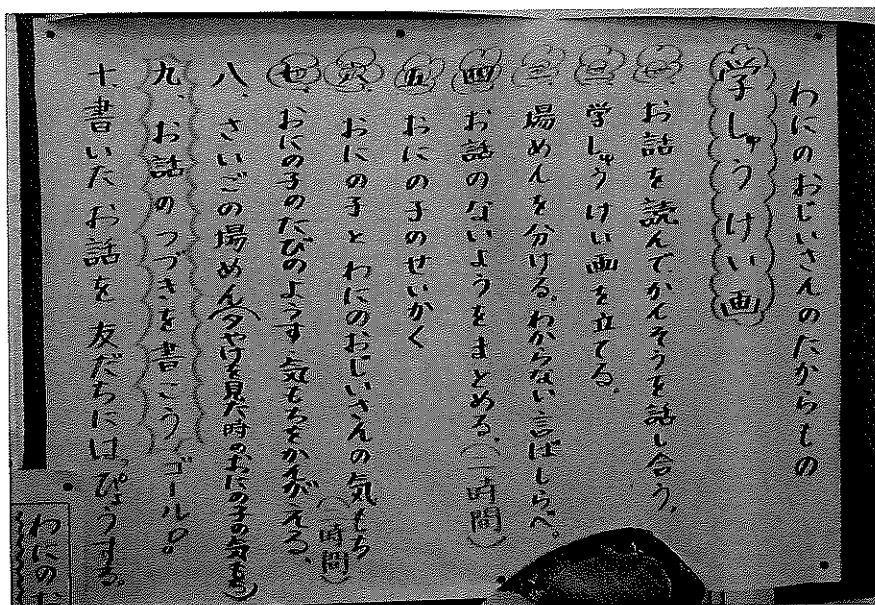 わにのおじいさんのたからもの
学しゅうけい画
一、お話を読んでかんそうを話し合う。
二、学しゅうけい画を立てる。
三、場めんを分ける。わからない言ばしらべ。
四、お話のないようをまとめる。(二時間)
五、おにの子のせいかく
六、おにの子とわにのおじいさんの気もち(二時間)
七、おにの子のたびのようす気もちをかんがえる。
八、さいごの場めん(夕やけを見た時のおにの子の気もち)
九、お話のつづきを書こう ゴール。
十、書いたお話を友だちにはっぴょうする。
わにのお